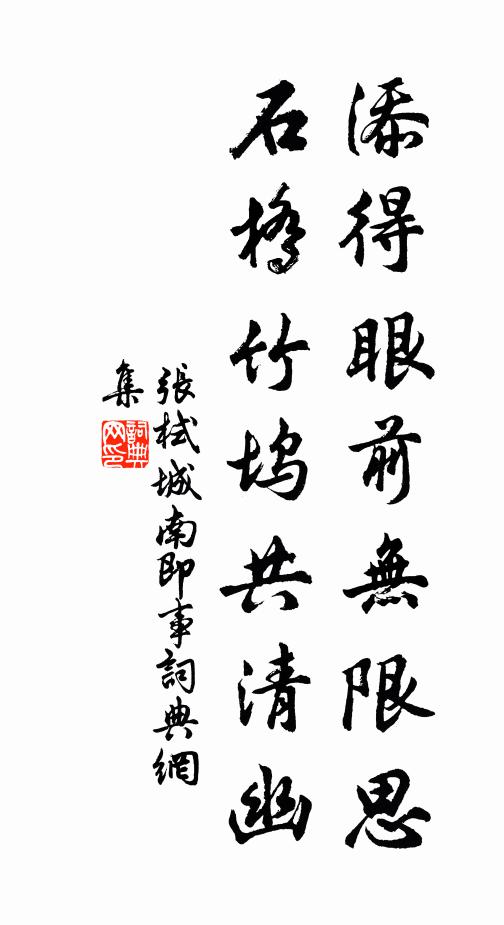 添得眼前無限思
石橋竹塢共清幽
張栻城南即事詞典網
集
詞典網印